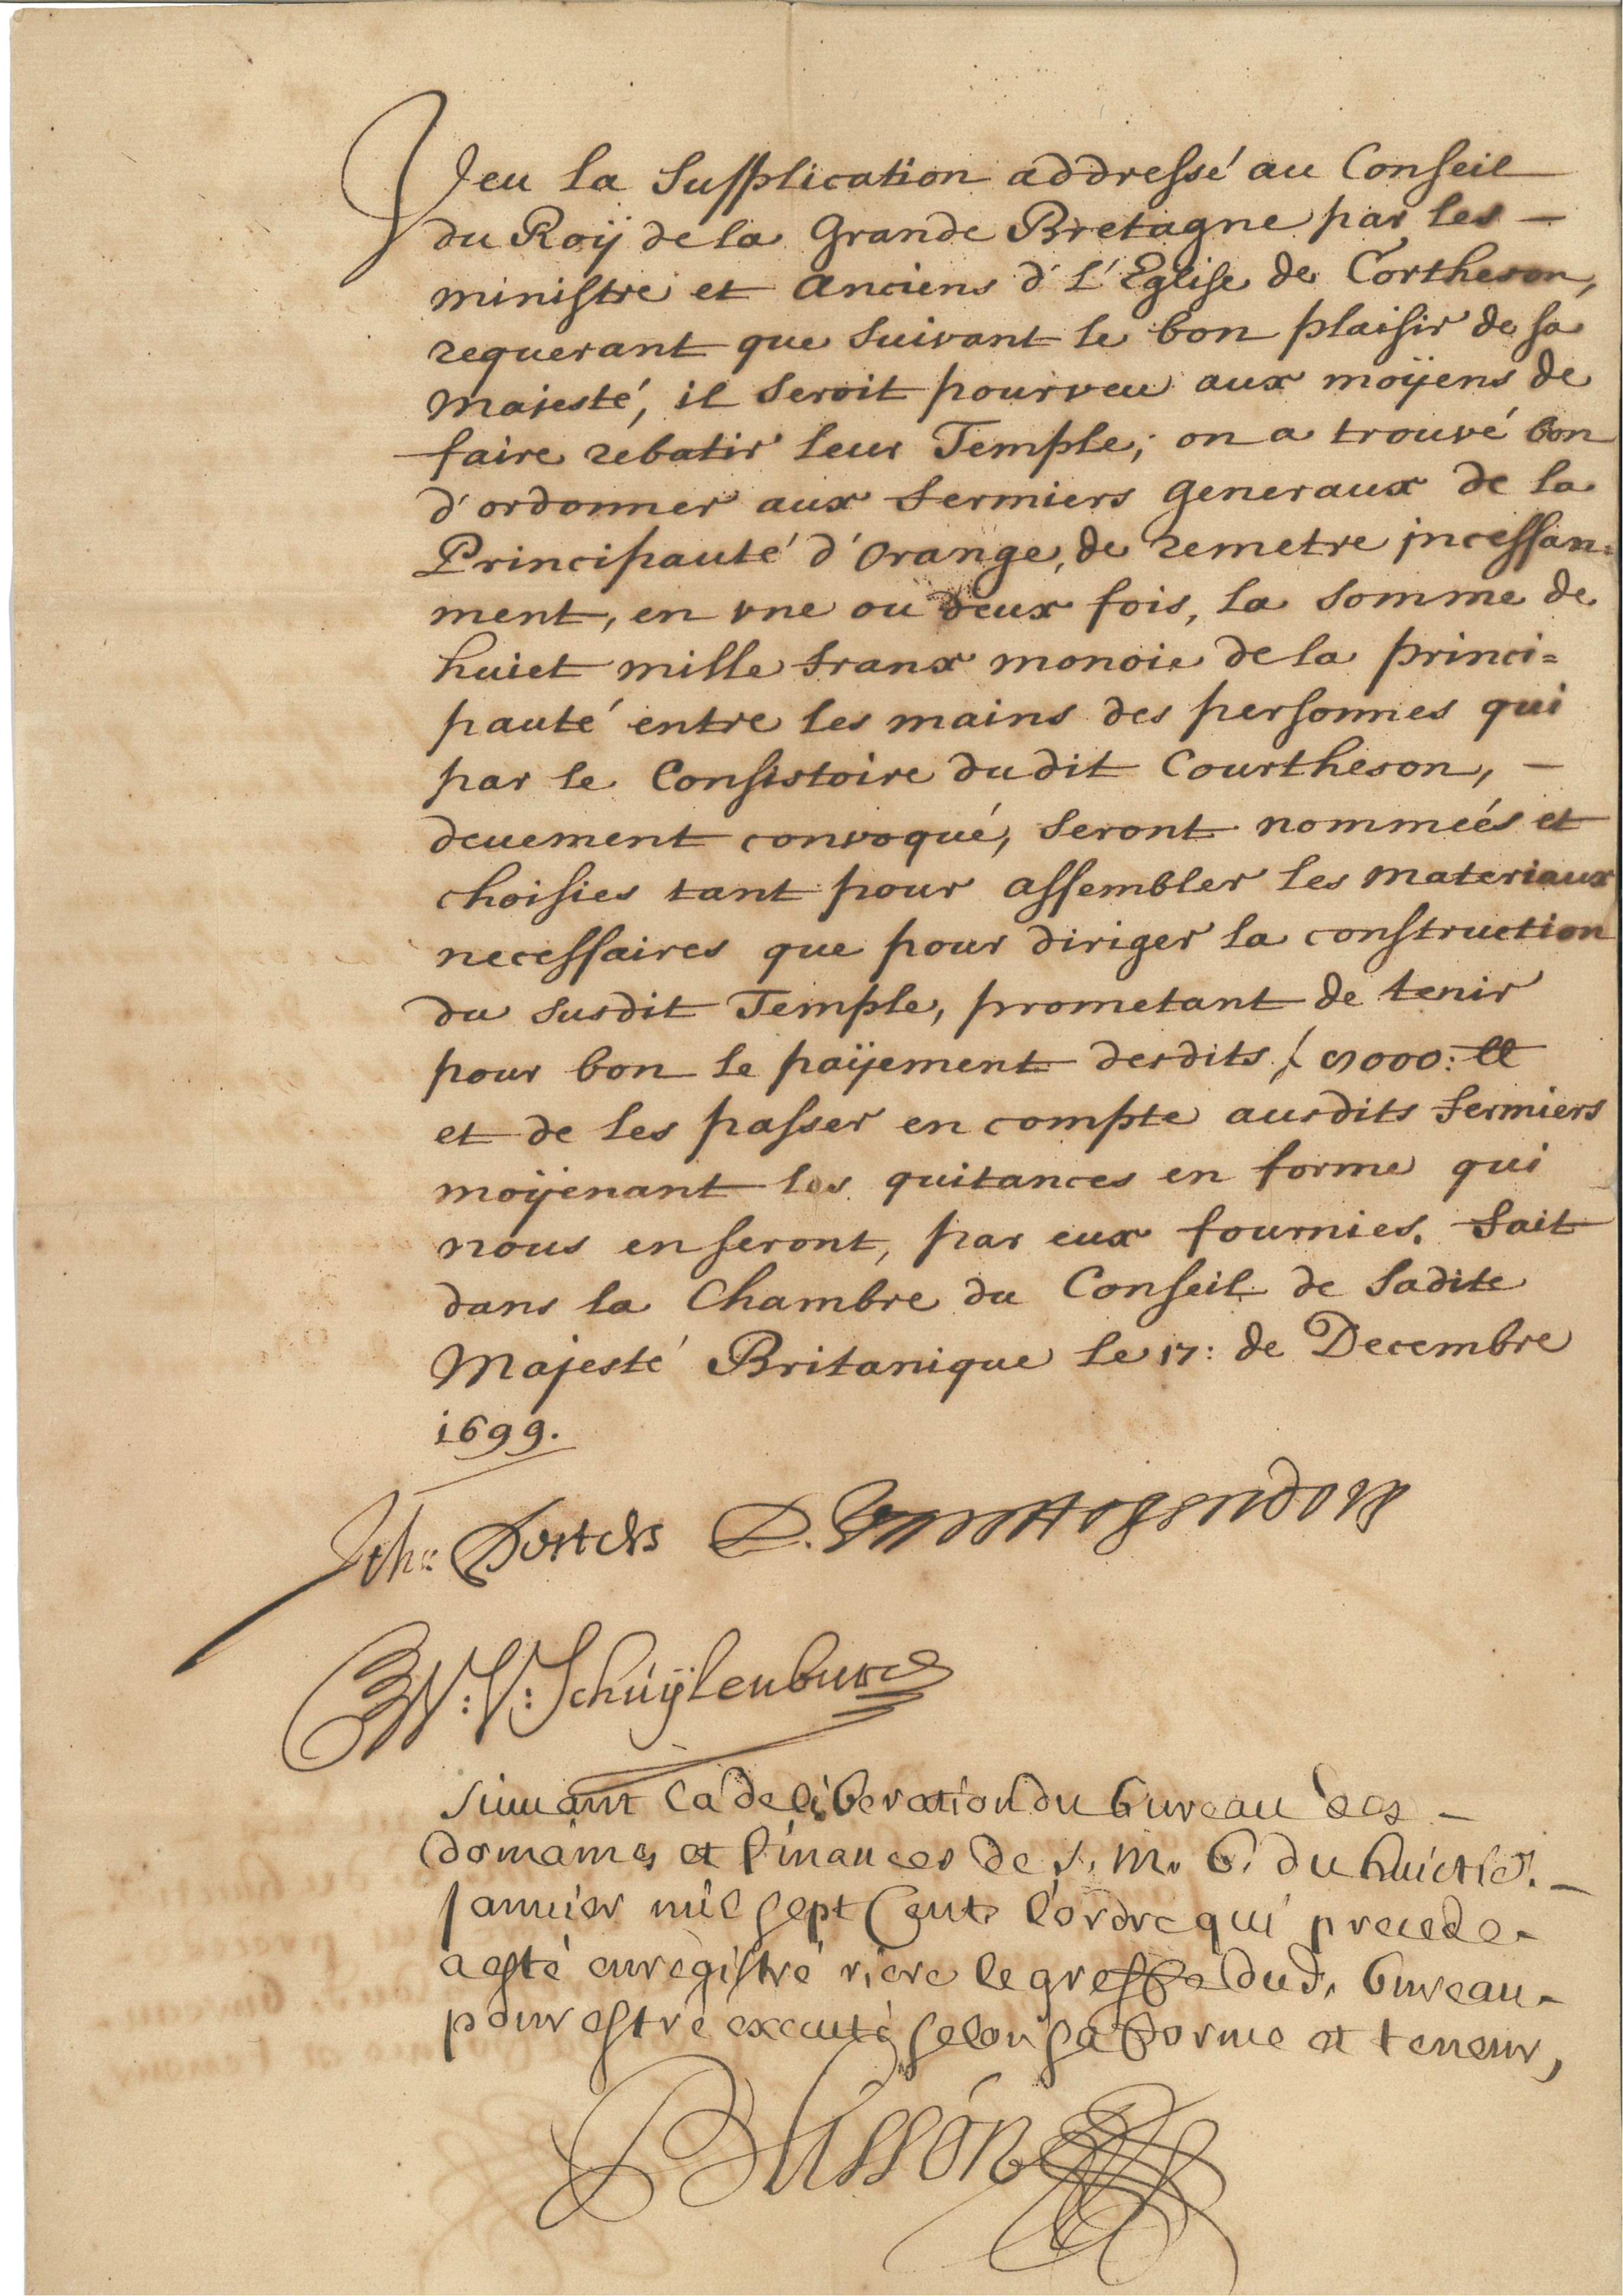 Veu la Supplication addressé au Conseil
du Roÿ de la Grande Bretagne par les
ministre et Anciens d L'Eglise de Cortheson,
requerant que suivant le bon plaisir de sa
Majesté, il seroit pourveu aux moÿens de
faire rebatir leur Temple; on a trouvé bon
d'ordonner aux fermiers generaux de la
Principauté d'Orange, de remetre incessan=
ment, en vne ou deux fois, la somme de
huict mille franx monoie de la princi=
pauté entre les mains des personnes qui
par le Consistoire dudit Courtheson,
deuement convoqué, seront nommeés et
choisies tant pour assembler les materiaux
necessaires que pour diriger la construction
du susdit Temple, prometant de tenir
pour bon le païjement desdits
et de les passer en compte ausdits fermiers
moÿenant les quitances en forme qui
nous en seront, par eux fournies. Fait
dans la Chambre du Conseil de Sadite
Majesté Britanique le 17: de Decembre
1699.
D. van Hogendorp
W: V: Schuÿlenburg
Suiuant la deliberation du bureau des
domaines et finances de s. m. b. du huictie.
januier mil sept Cent l'ordre qui precede
a esté enregistré riere le greffe dud. bureau
pour estre executé selon sa forme et teneur,
Bússon